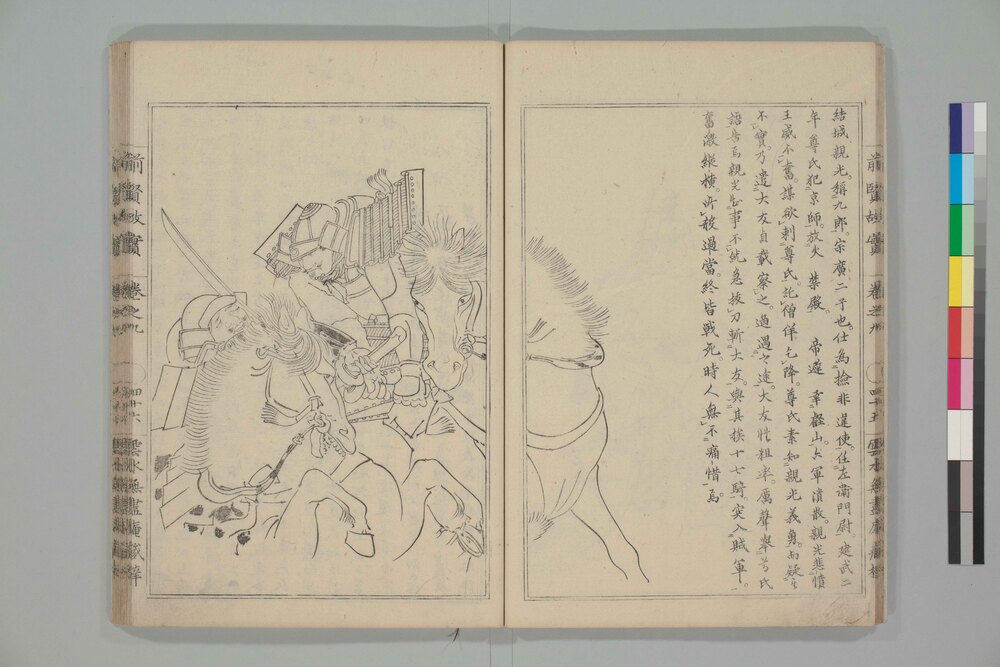 結城親光。稱九郎。宗廣二子也。仕為撿非違使。任左衛門尉。建武二
年尊氏犯京師。放火 禁殿。 帝遊幸 山。 軍潰散。親光悲憤
王威不奮。謀欲刺尊氏。託僧佯乞降。尊氏素知親光義勇。而疑
不實。乃遣大友貞載察之。 遇 途。大友性粗率。厲聲舉尊氏
語告焉。親光 事不 。急抜刀斬大友。與其 十七騎。突入賊軍。
奮激縱橫。所殺過當。終皆戰死。時人無不痛惜焉。
前賢故實 卷之九 四十五
前賢故實 卷之九 四十六